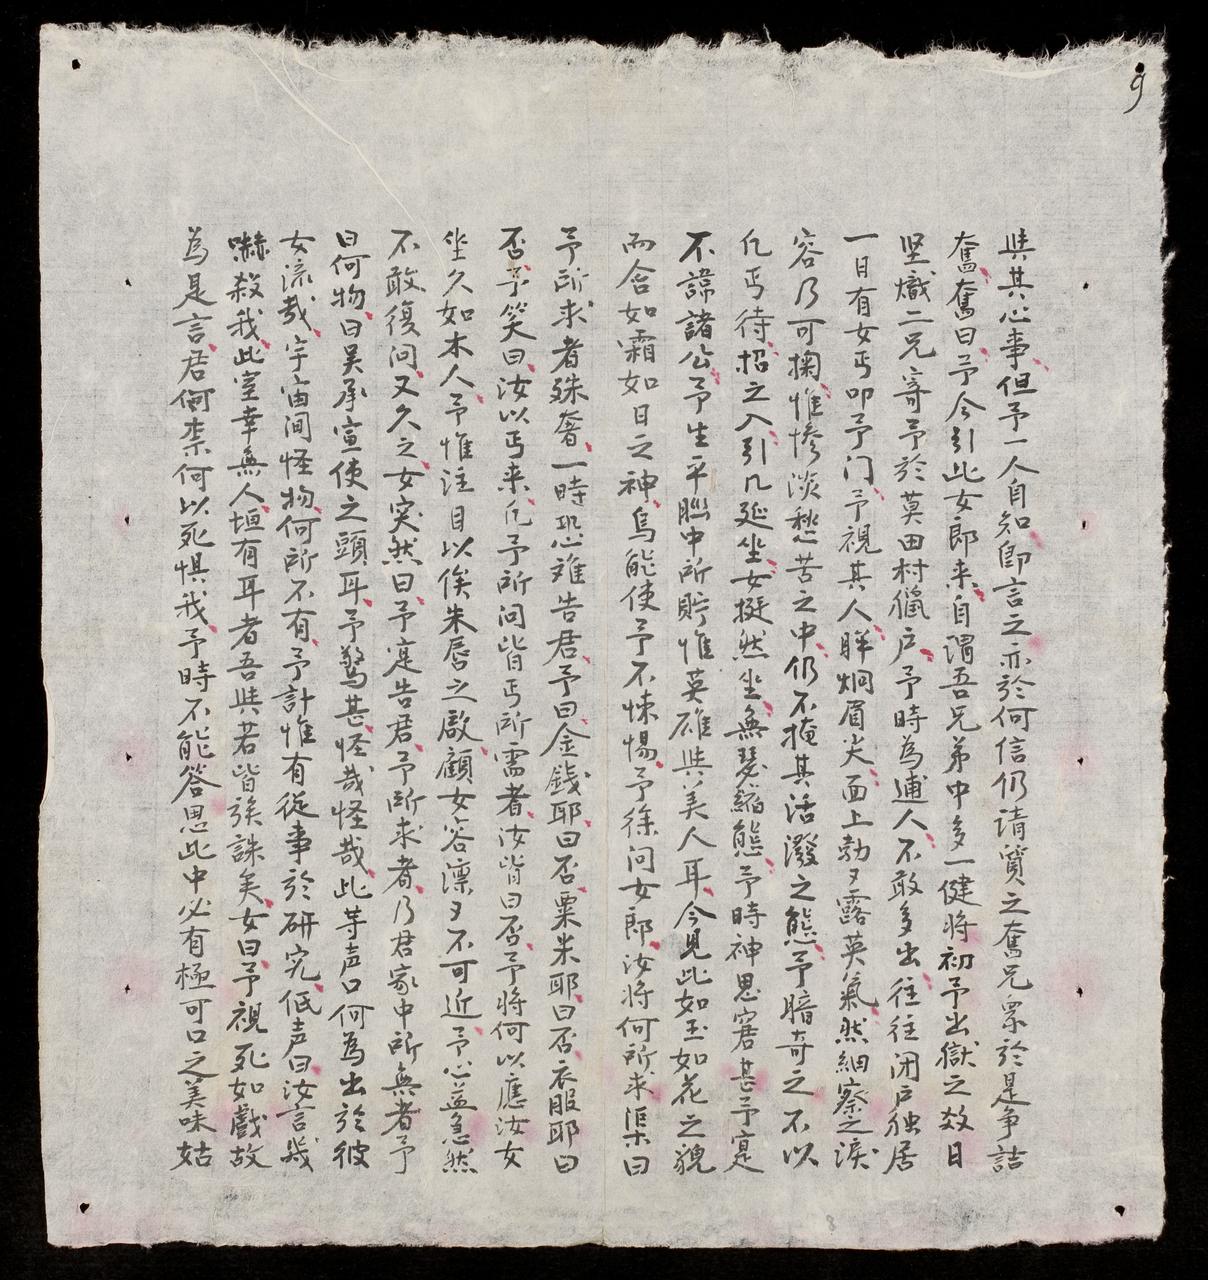 9
與其心事但予一人自知即言之亦於何信仍请質之奮兄眾於是争詰
奮奮曰予今引此女郎来自謂吾兄弟中多一健将初予出獄之数日
坚熾二兄寄予於莫田村獵户予時為逋人不敢多出往往闭户独居
一日有女丐叩予门予視其人眸炯眉尖面上勃々露英氣然細察之淚
容乃可掬惟惨淡愁苦之中仍不掩其活潑之態予暗奇之不以
凡丐待招之入引几延坐女挺然坐無瑟縮態予時神思窘甚予寔
不諱諸公予生平腦中所貯惟英雄與美人耳今見此如玉如花之貌
而含如霜如日之神烏能使予不悚惕予徐问女郎汝将何所求渠曰
予所求者殊奢一時恐难告君予曰金錢耶曰否粟米耶曰否衣服耶曰
否予笑曰汝以丐来凡予所问皆丐所需者汝皆曰否予将何以應汝女
坐久如木人予惟注目以俟朱唇之啟顧女容凛々不可近予心益急然
不敢復问又久之女突然曰予寔告君予所求者乃君家中所無者予
曰何物曰吴承宣使之頭耳予驚甚怪哉怪哉此等声口何為出於彼
女流哉宇宙间怪物何所不有予計惟有從事於研究低声曰汝言幾
嚇殺我此室幸無人垣有耳者吾與若皆族誅矣女曰予視死如戲故
為是言君何柰何以死惧我予時不能答思此中必有極可口之美味姑
8